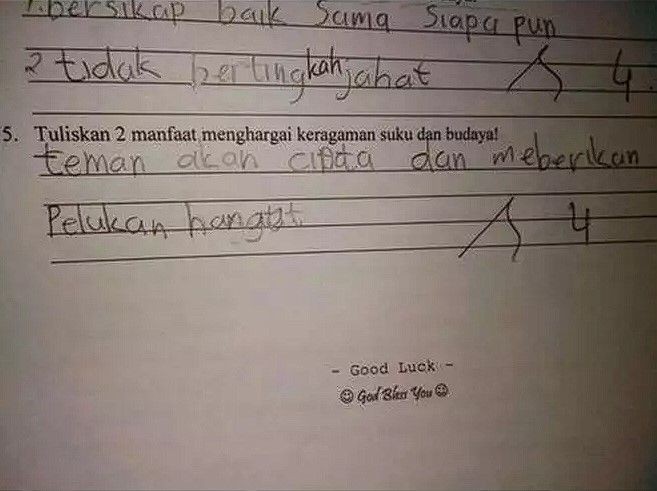 1. bersikap baik sama siapa pun
2 tidak bertingkah jahat 4
5. Tuliskan 2 manfaat menghargai keragaman suku dan budaya!
teman akan cinta dan meberikan
Pelukan hangat 4
- Good Luck -
☺ God Bless You ☺